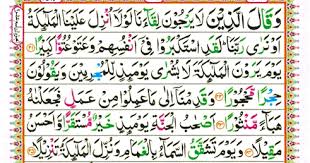 وَقَالَ الَّذِيۡنَ لَا يَرۡجُوۡنَ لِقَآءَنَا لَوۡلَاۤ اُنۡزِلَ عَلَيۡنَا الۡمَلٰٓٮِٕكَةُ
اَوۡ نَرٰى رَبَّنَا ؕ لَقَدِ اسۡتَكۡبَرُوۡا فِىۡۤ اَنۡفُسِهِمۡ وَعَتَوۡ عُتُوًّا كَبِيۡرًا ﴿۲۱﴾
يَوۡمَ يَرَوۡنَ الۡمَلٰٓٮِٕكَةَ لَا بُشۡرٰى يَوۡمَٮِٕذٍ لِّلۡمُجۡرِمِيۡنَ وَيَقُوۡلُوۡنَ
حِجۡرًا مَّحۡجُوۡرًا ﴿۲۲﴾ وَقَدِمۡنَاۤ اِلٰى مَا عَمِلُوۡا مِنۡ عَمَلٍ فَجَعَلۡنٰهُ
هَبَآءً مَّنۡثُوۡرًا ﴿۲۳﴾ اَصۡحٰبُ الۡجَنَّةِ يَوۡمَٮِٕذٍ خَيۡرٌ مُّسۡتَقَرًّا وَّاَحۡسَنُ
مَقِيۡلًا ﴿۲۴﴾ وَيَوۡمَ تَشَقَّقُ السَّمَآءُ بِالۡغَمَامِ وَنُزِّلَ الۡمَلٰٓٮِٕكَةُ تَنۡزِيۡلًا